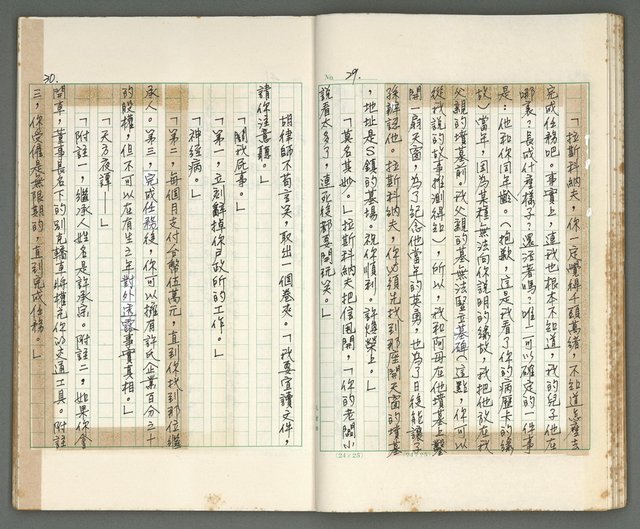 No. 29.
「拉斯科納夫，你一定覺得千頭萬緒，不知道怎麼去
完成任務吧。事實上，這我也根本不知道，我的兒子他在
哪裏？長成什麼樣子？還活著嗎？唯一可以確定的一件事
是：他和你同年齡。（抱歉，這是我看了你的病歷卡的緣
故）當年，因為某種無法向你說明的緣故，我把他放在我
父親的墳墓前。我父親的墓無法豎立墓碑（這點，你可以
從我說的故事推測得知），所以，我和阿母在他墳墓上鑿
開一扇天窗，為了紀念他當年的英勇，也為了日後能讓子
孫辨認他。拉斯科納夫，你必須先找到那座開天窗的墳墓
，地址是S鎮的墓場。祝你順利。許煥榮上。」
「莫名其妙。」拉斯科納夫把信甩開，「你的老闆小
說看太多了，連死後都要開玩笑。」
(24×25)
30.
胡律師不苟言笑，取出一個卷夾。「我要宣讀文件，
請你注意聽。」
「關我屁事。」
「第一，立刻辭掉你戶政所的工作。」
「神經病。」
「第二，每個月支付台幣伍萬元，直到你找到那位繼
承人。第三，完成任務後，你可以擁有許氏企業百分之十
的股權，但不可以在有生之年對外透露事實真相。」
「天方夜譚——」
「附註一，繼承人姓名是許承宗。附註二，如果你會
開車，董事長名下的別克轎車將撥充你的交通工具。附註
三，你受僱是無限期的，直到完成任務。」